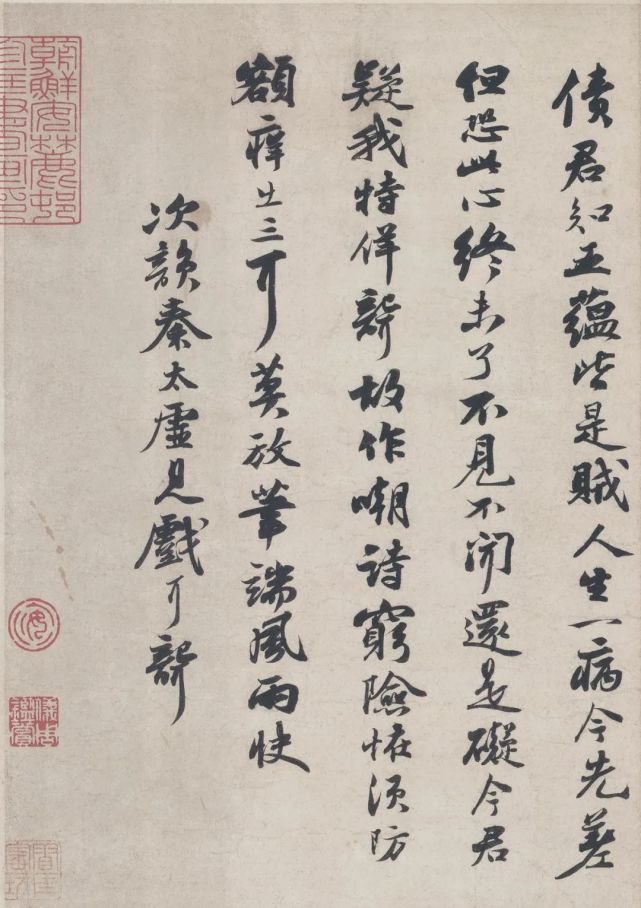 債君知五蘊皆是賊人生一病今先差
但恐此心終未了不見不聞還是礙今君
疑我特佯聾故作嘲詩窮險怪須防
額癢出三耳莫放筆端風雨快
次韻秦太虛見戲耳聾
朝鮮安麓邨
儀周
鑑賞